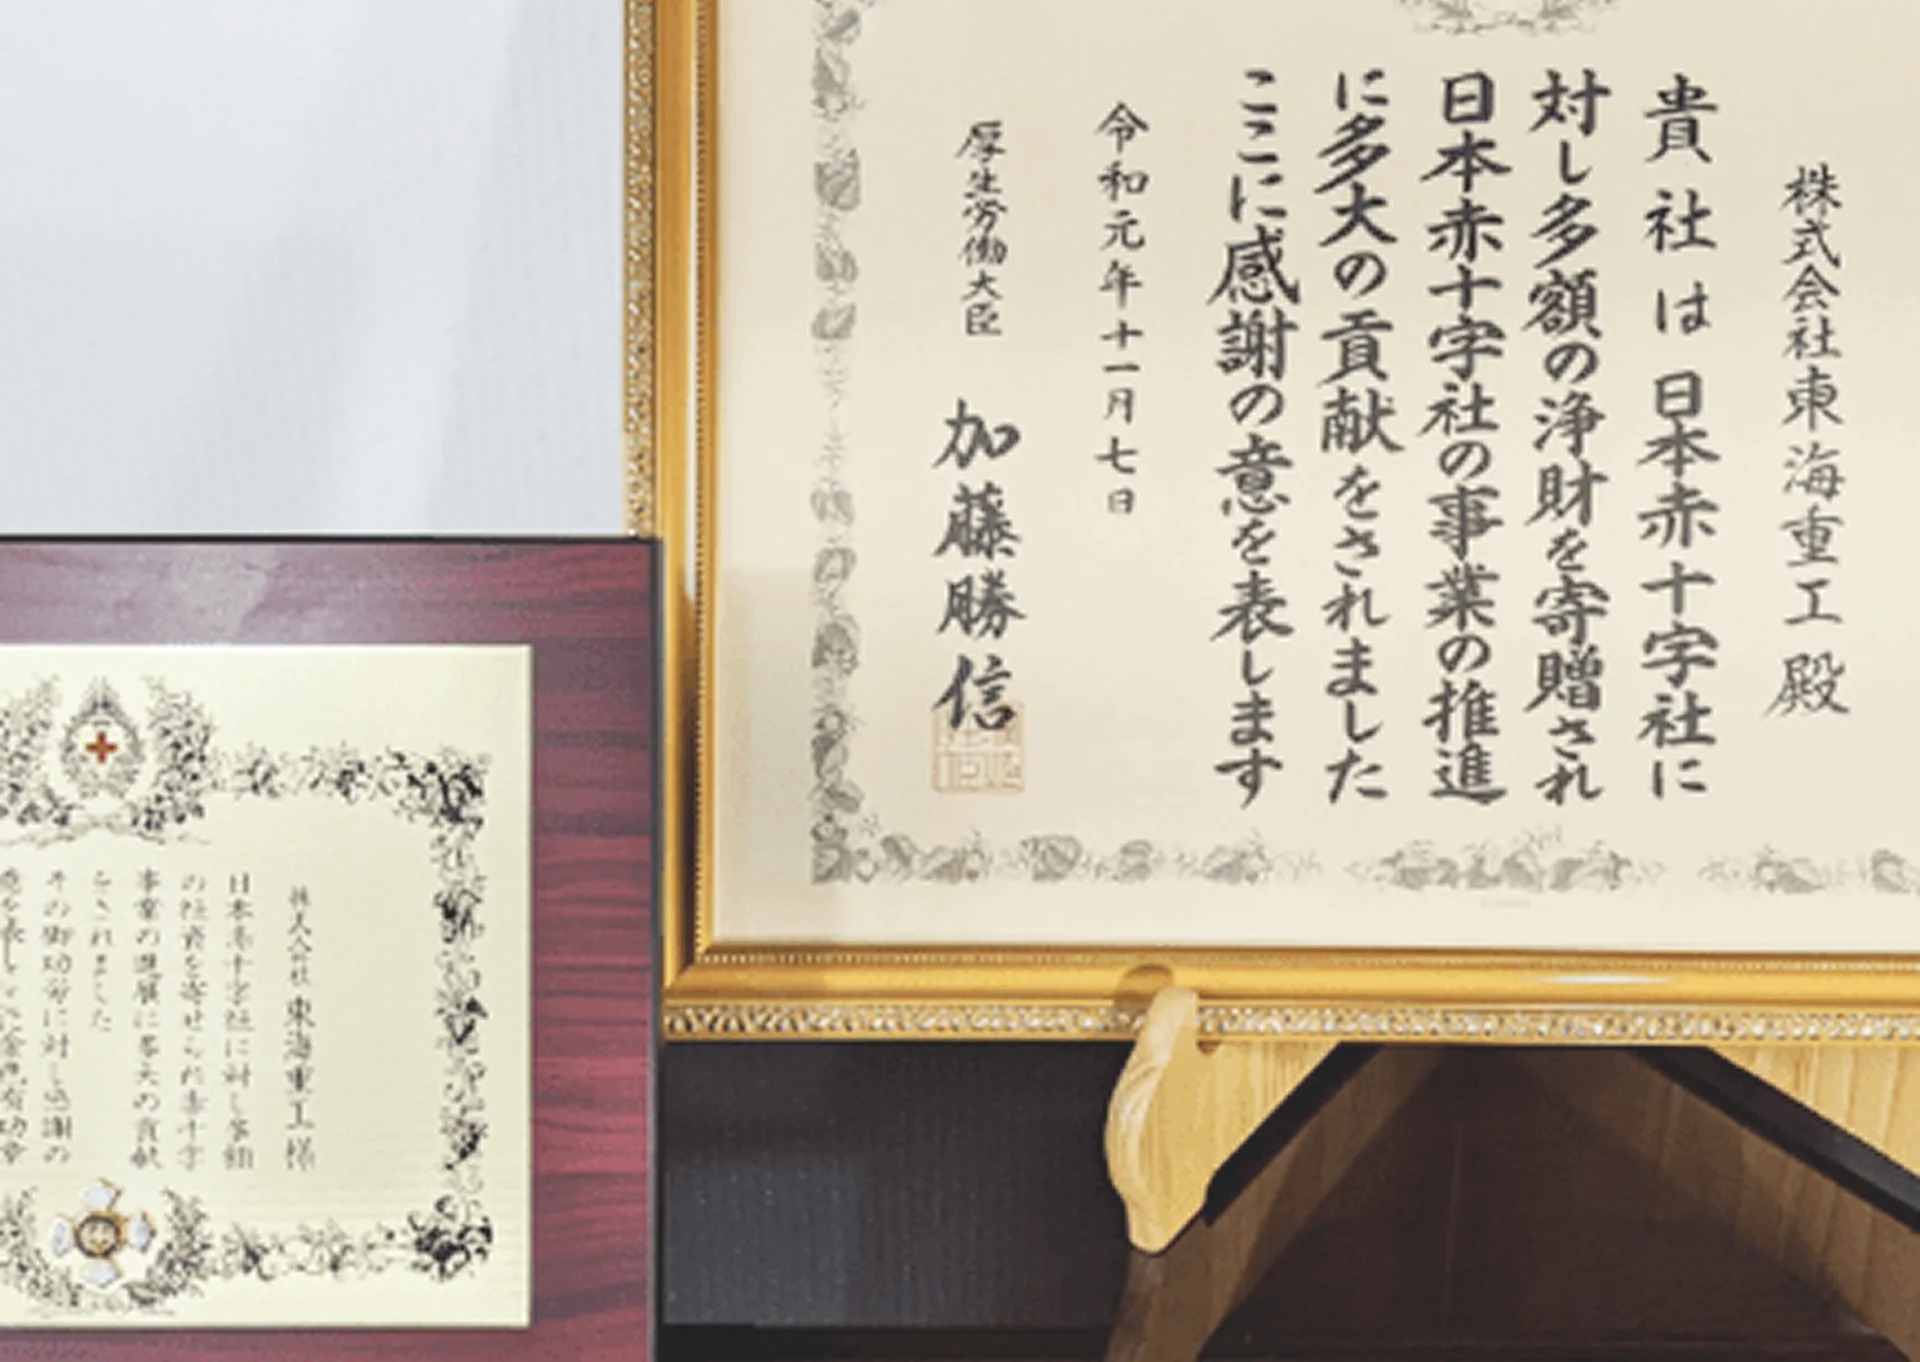 株式会社東海重工殿
貴社は日本赤十字社に
対し多額の浄財を寄贈され
日本赤十字社の事業の推進
に多大の貢献をされました
ここに感謝の意を表します
令和元年十一月七日
厚生労働大臣 加藤勝信
株式会社 東海重工 様
日本赤十字社に対し多額
の社資を寄せられ赤十字
事業の進展に多大の貢献
をされました
その御功労に対し感謝の